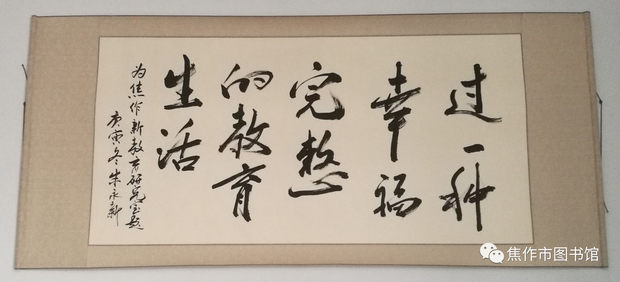 过一种
幸福
完整
的教育
生活
为焦作新教育研究室题
庚寅冬朱永新
焦作市图书馆